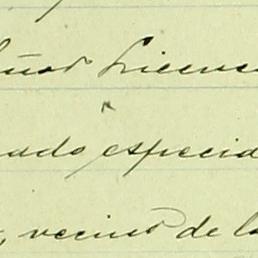 eñor Licenc
ado especia
, vecino de l